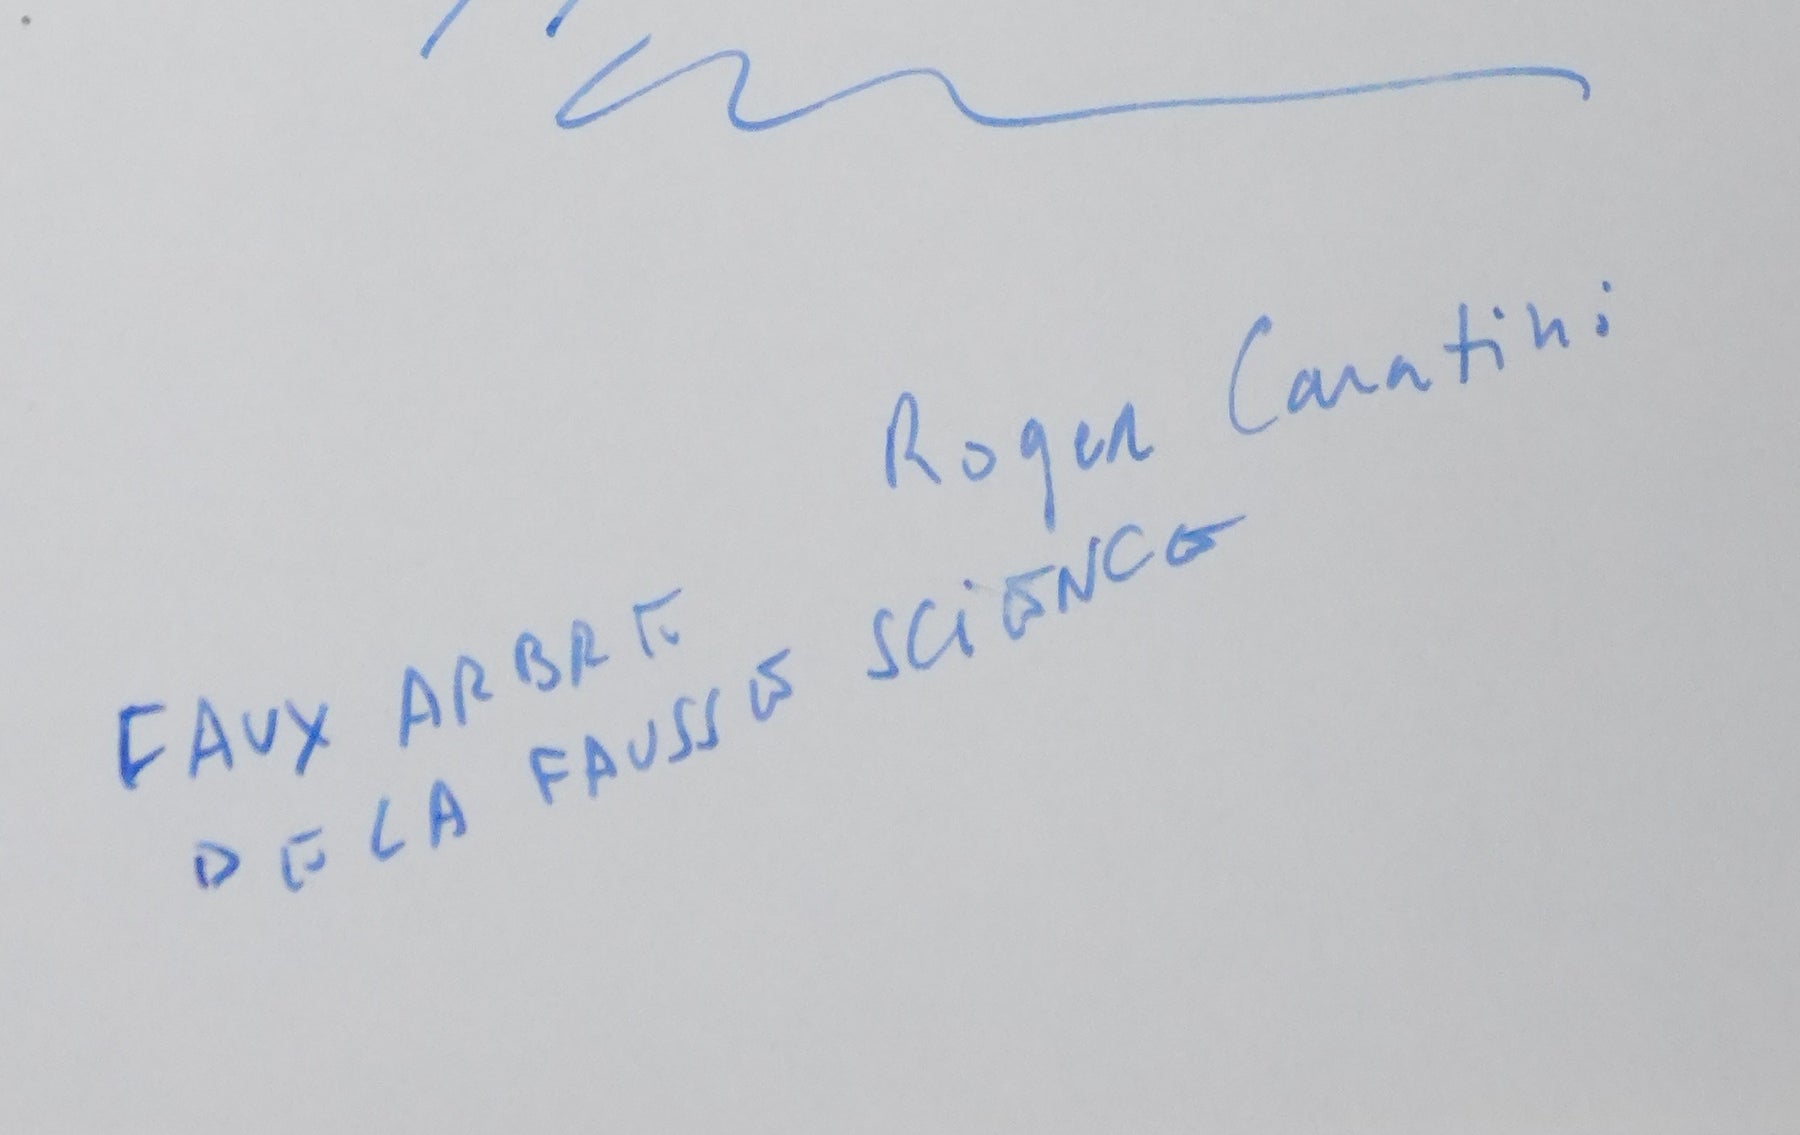 Roger Caratini
FAUX ARBRE
DE LA FAUSSE SCIENCE